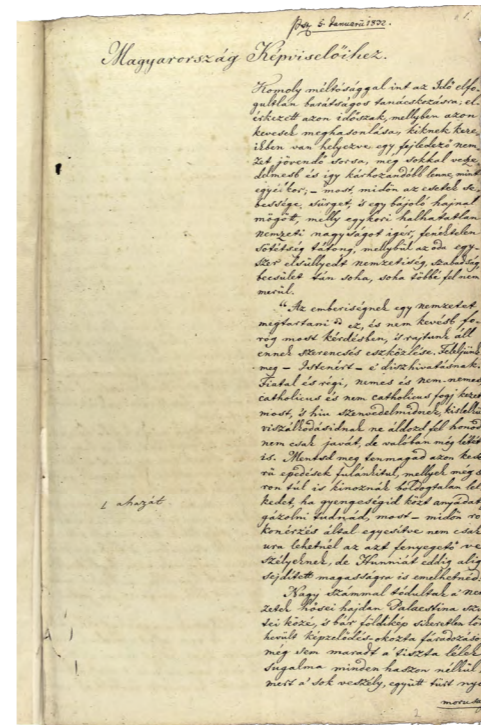 5. Januarii 1832.
1.
Magyarország Képviselőihez.
Komoly méltósággal int az Idő elfo-
gultlan barátságos tanácskozásra; el-
érkezett azon időszak, mellyben azon
kevesek meghasonlása, kiknek keze-
ikben van helyezve egy fejledező nem-
zet jövendő sorsa, még sokkal vesze-
delmesb és így kárhozandóbb lenne, mint
egyéb kor; – most, midőn az esetek se-
bessége sürget, 's egy bájoló hajnal
mögött, melly egykori halhatatlan
nemzeti nagyságot igér, feneketlen
sötétség tátong, mellybül az oda egy-
szer elsüllyedt nemzetiség, szabadság
becsület tán soha, soha többé fel nem
merül.
"Az emberiségnek egy nemzetet
megtartani" ez, és nem kevésb fo-
rog most kérdésben, 's rajtunk áll
ennek szerencsés eszközlése. Feleljünk
meg – Istenért – e' díszhivatásnak.
Fiatal és régi, nemes és nem-nemes,
catholicus és nem catholicus fogj kezet
most, 's hiu szenvedelmidnek, kislelkü
viszálkodásidnak ne áldozd fel honod
nem csak javát, de valóban még létét
is. Mentsd meg tenmagad azon kese-
rü epedések fulánkitul, mellyek még s
ron túl is kinoznák boldogtalan lel
kedet, ha gyengeségid közt anyádat
L ahazát
gázolni tudnád, most – midőn ro
konérzés által egyesítve nem csak
ura lehetnél az azt fenyegető ve
szélyeknek, de Hunniát eddig alig
sejdített magasságra is emelhetnéd
Nagy számmal tódultak a' nem
zetek hősei hajdan Palaestina sze
sei közé, 's bár földikép sikeretlen lön
hevült képzelődés-okozta fáradozásuk
még sem maradt a' tiszta lélek
sugalma minden haszon nélkül,
mert a' sok veszély, együtt türt nyo
morusá
2